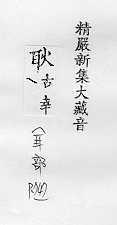 精嚴新集大藏音
耿古幸
(耳部